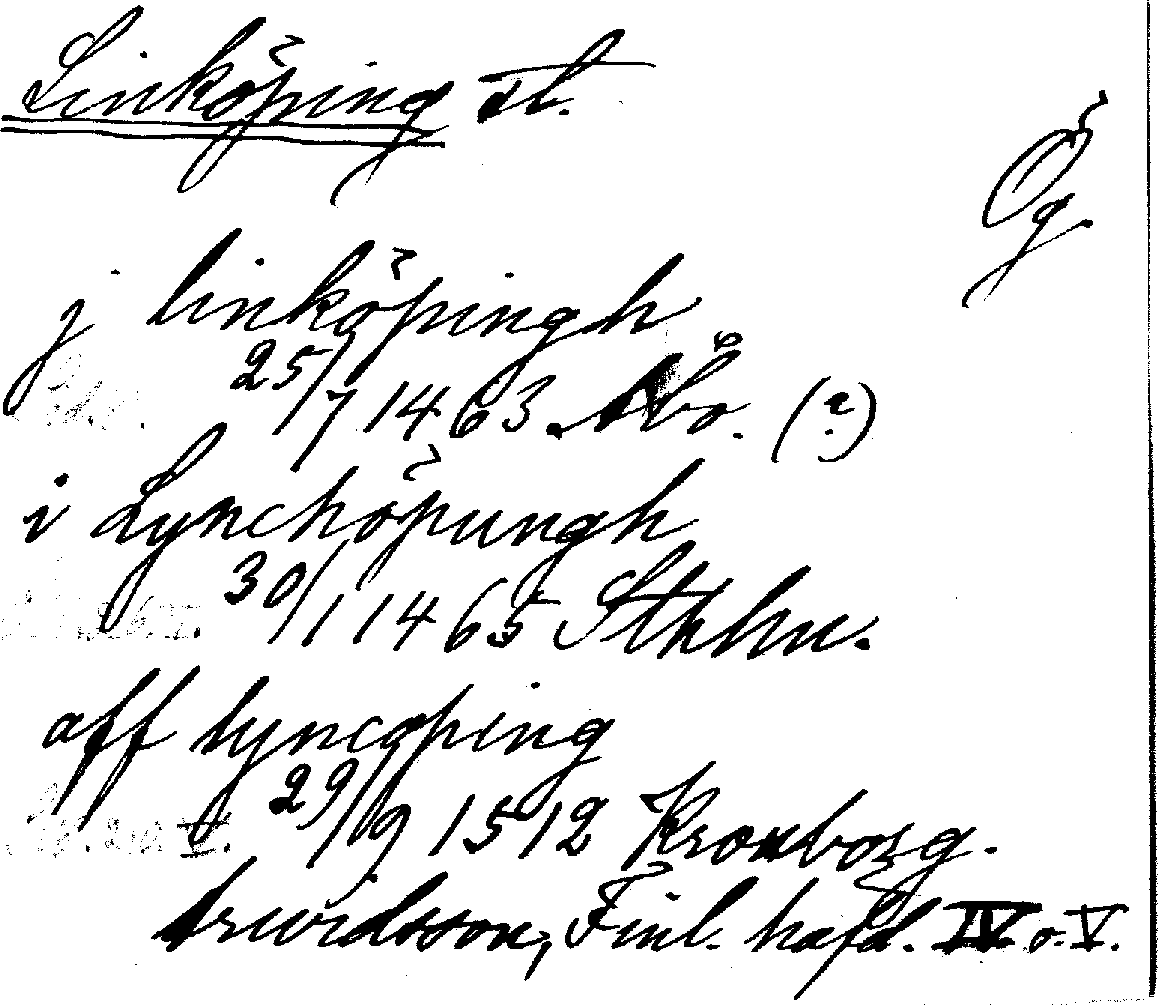 Linköping st.
Ög.
j linköpingh
25/7 1463. Åbo. (?)
i Lynchöpungh
30/1 1465 Sthlm.
aff lyncøping
29/9 1512 Kronborg.
Arwidsson, Finl. häfd. IV o. V.